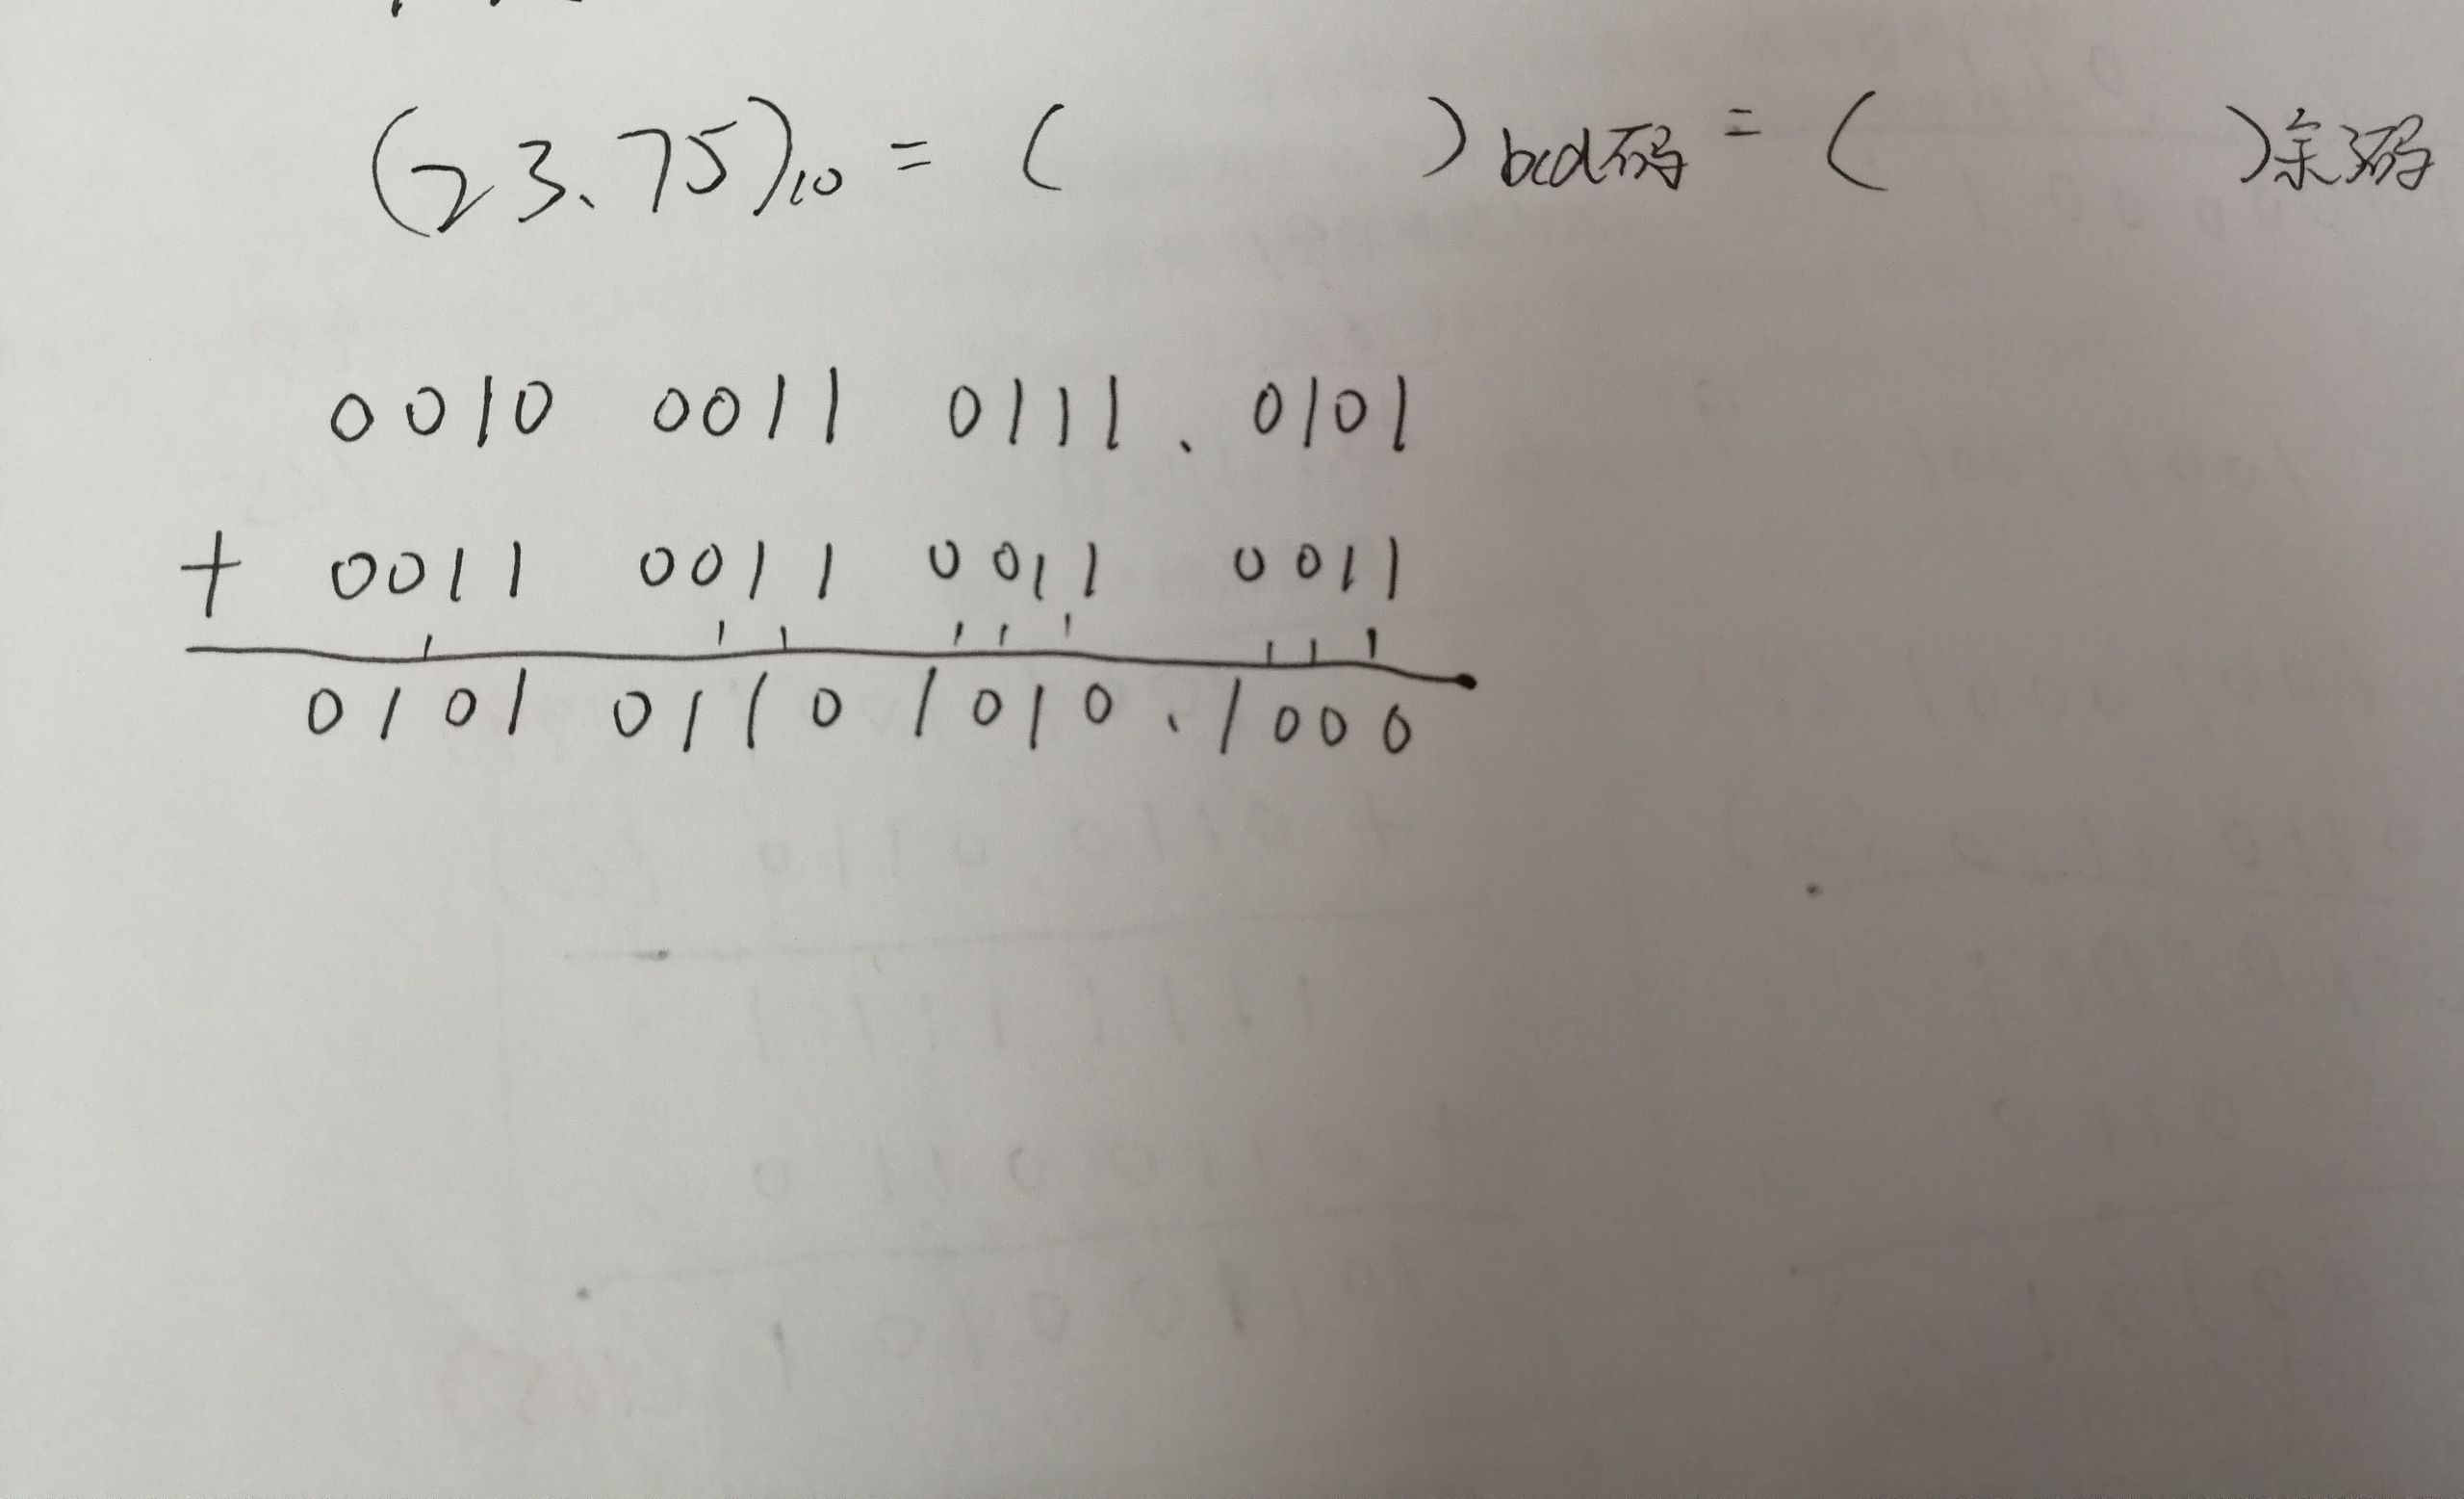 (23.75)10 = ( )bcd码 = ( )余3码
0010 0011 0111 . 0101
+ 0011 0011 0011 0011
0101 0110 1010 . 1000